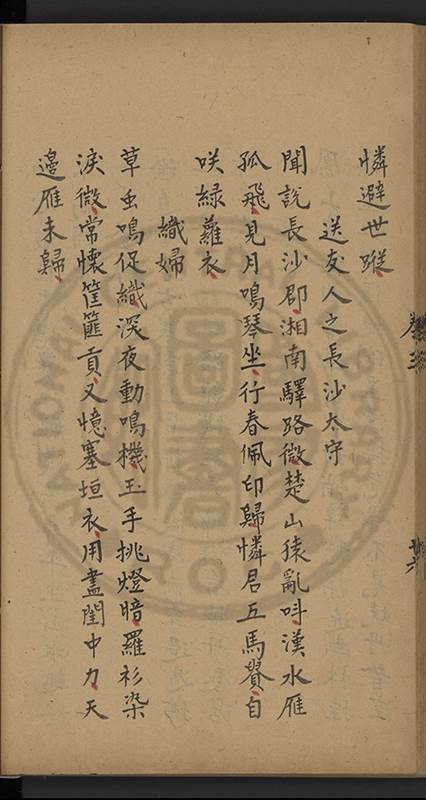 憐避世蹤
送友人之長沙太守
聞說長沙郡湘南驛路微楚山猿亂呌漢水雁
孤飛見月鳴琴坐行春佩印歸憐君五馬貴自
咲緑蘿衣
織婦
草虫鳴促織深夜動鳴機玉手挑燈暗羅衫染
淚微常懷筐篚貢又憶塞垣衣用盡閨中力天
邉雁未歸
卷三
廿六